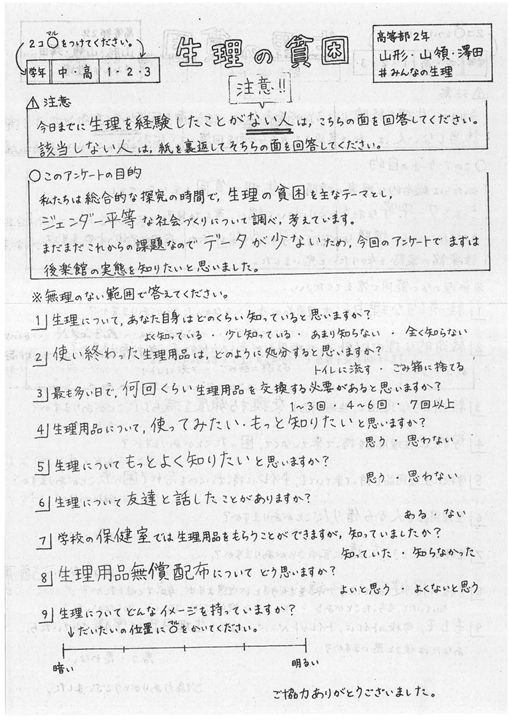 2コ○をつけてください。
マル
学年 中・高 1・2・3
生理の貧困
注意!!
高等部2年
山形・山領・澤田
#みんなの生理
⚠ 注意
今日までに生理を経験したことがない人は、こちらの面を回答してください。
該当しない人は、紙を裏返してそちらの面を回答してください。
○このアンケートの目的
私たちは総合的な探究の時間で、生理の貧困を主なテーマとし、
ジェンダー平等な社会づくりについて調べ、考えています。
まだまだこれからの課題なのでデータが少ないため、今回のアンケートでまずは
後楽館の実態を知りたいと思いました。
※無理のない範囲で答えてください。
1 生理について、あなた自身はどのくらい知っていると思いますか?
よく知っている ・ 少し知っている ・ あまり知らない ・ 全く知らない
2 使い終わった生理用品は、どのように処分すると思いますか?
トイレに流す ・ ごみ箱に捨てる
3 最も多い日で、何回くらい生理用品を交換する必要があると思いますか?
1~3回 ・ 4~6回 ・ 7回以上
4 生理用品について、使ってみたい・もっと知りたいと思いますか?
思う ・ 思わない
5 生理についてもっとよく知りたいと思いますか?
思う ・ 思わない
6 生理について友達と話したことがありますか?
ある ・ ない
7 学校の保健室では生理用品をもらうことができますが、知っていましたか?
知っていた ・ 知らなかった
8 生理用品無償配布についてどう思いますか?
よいと思う ・ よくないと思う
9 生理についてどんなイメージを持っていますか?
↓だいたいの位置に○をかいてください。
マル
暗い 明るい
ご協力ありがとうございました。